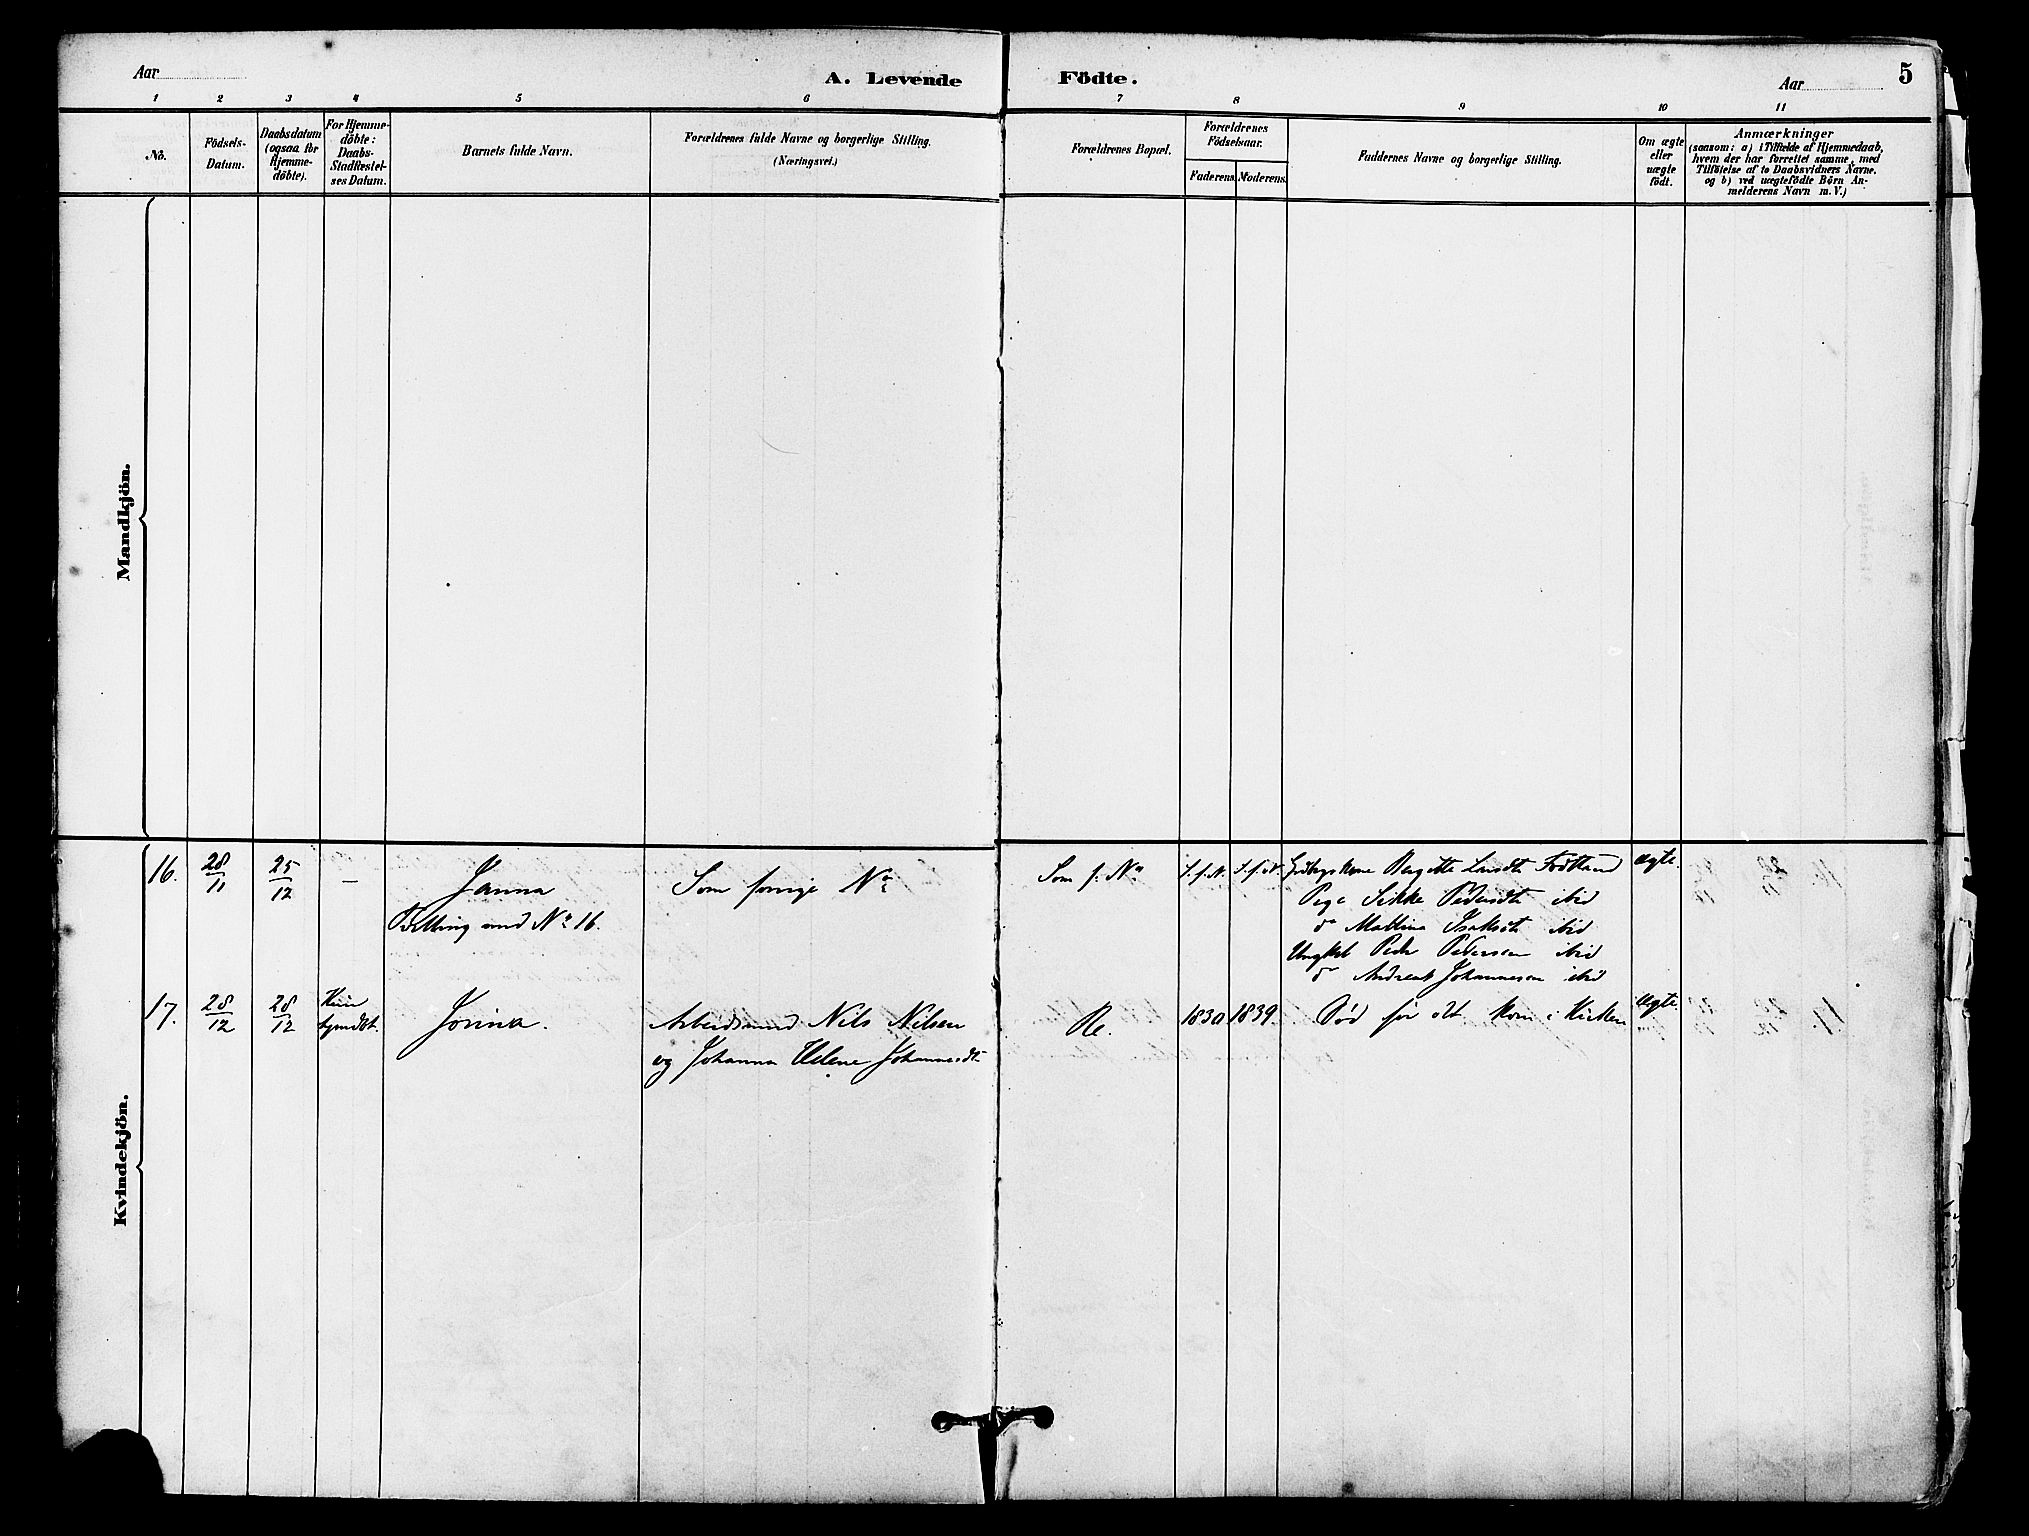 Aar
A. Levende
Födte.
Aar
5
1 2 3 4 5 6 7 8 9 10 11
No.
Födsels-
Datum.
Daabsdatum
(ogsaa for
Hjemme-
döbte).
For Hjemme-
döbte:
Daabs-
Stadfæstel-
ses Datum.
Barnets fulde Navn.
Forældrenes fulde Navne og borgerlige Stilling.
(Næringsvei.)
Forældrenes Bopæl.
Forældrenes
Födselsaar.
Faderens.
Moderens.
Faddernes Navne og borgerlige Stilling.
Om ægte
eller
uægte
födt.
Anmærkninger
(saasom: a) i Tilfælde af Hjemmedaab,
hvem der har forrettet samme, med
Tilföielse af to Daabsvidners Navne.
og b) ved uægtefödte Börn An-
melderens Navn m. V.)
Mandkjön.
Kvindekjön.
16. 28/11 25/12 — Janna
Tvilling med No 16.
Som forrige No
Som f. No S. f. N. S. f. N.
Gdbrgskone Bergitte Larsdt Fodtland
Pige Sikke Pedersdt ibid
do Mallina Isaksdt ibid
Ungkl Peder Pedersen ibid
do Andreas Johannesen ibid
Ægte.
17. 28/12 28/12 Hjem
Jorina.
Arbeidsmand Nils Nilsen
og Johanna Helene Johannesdt
Re. 1830 1839.
Död för det kom i Kirken
Ægte